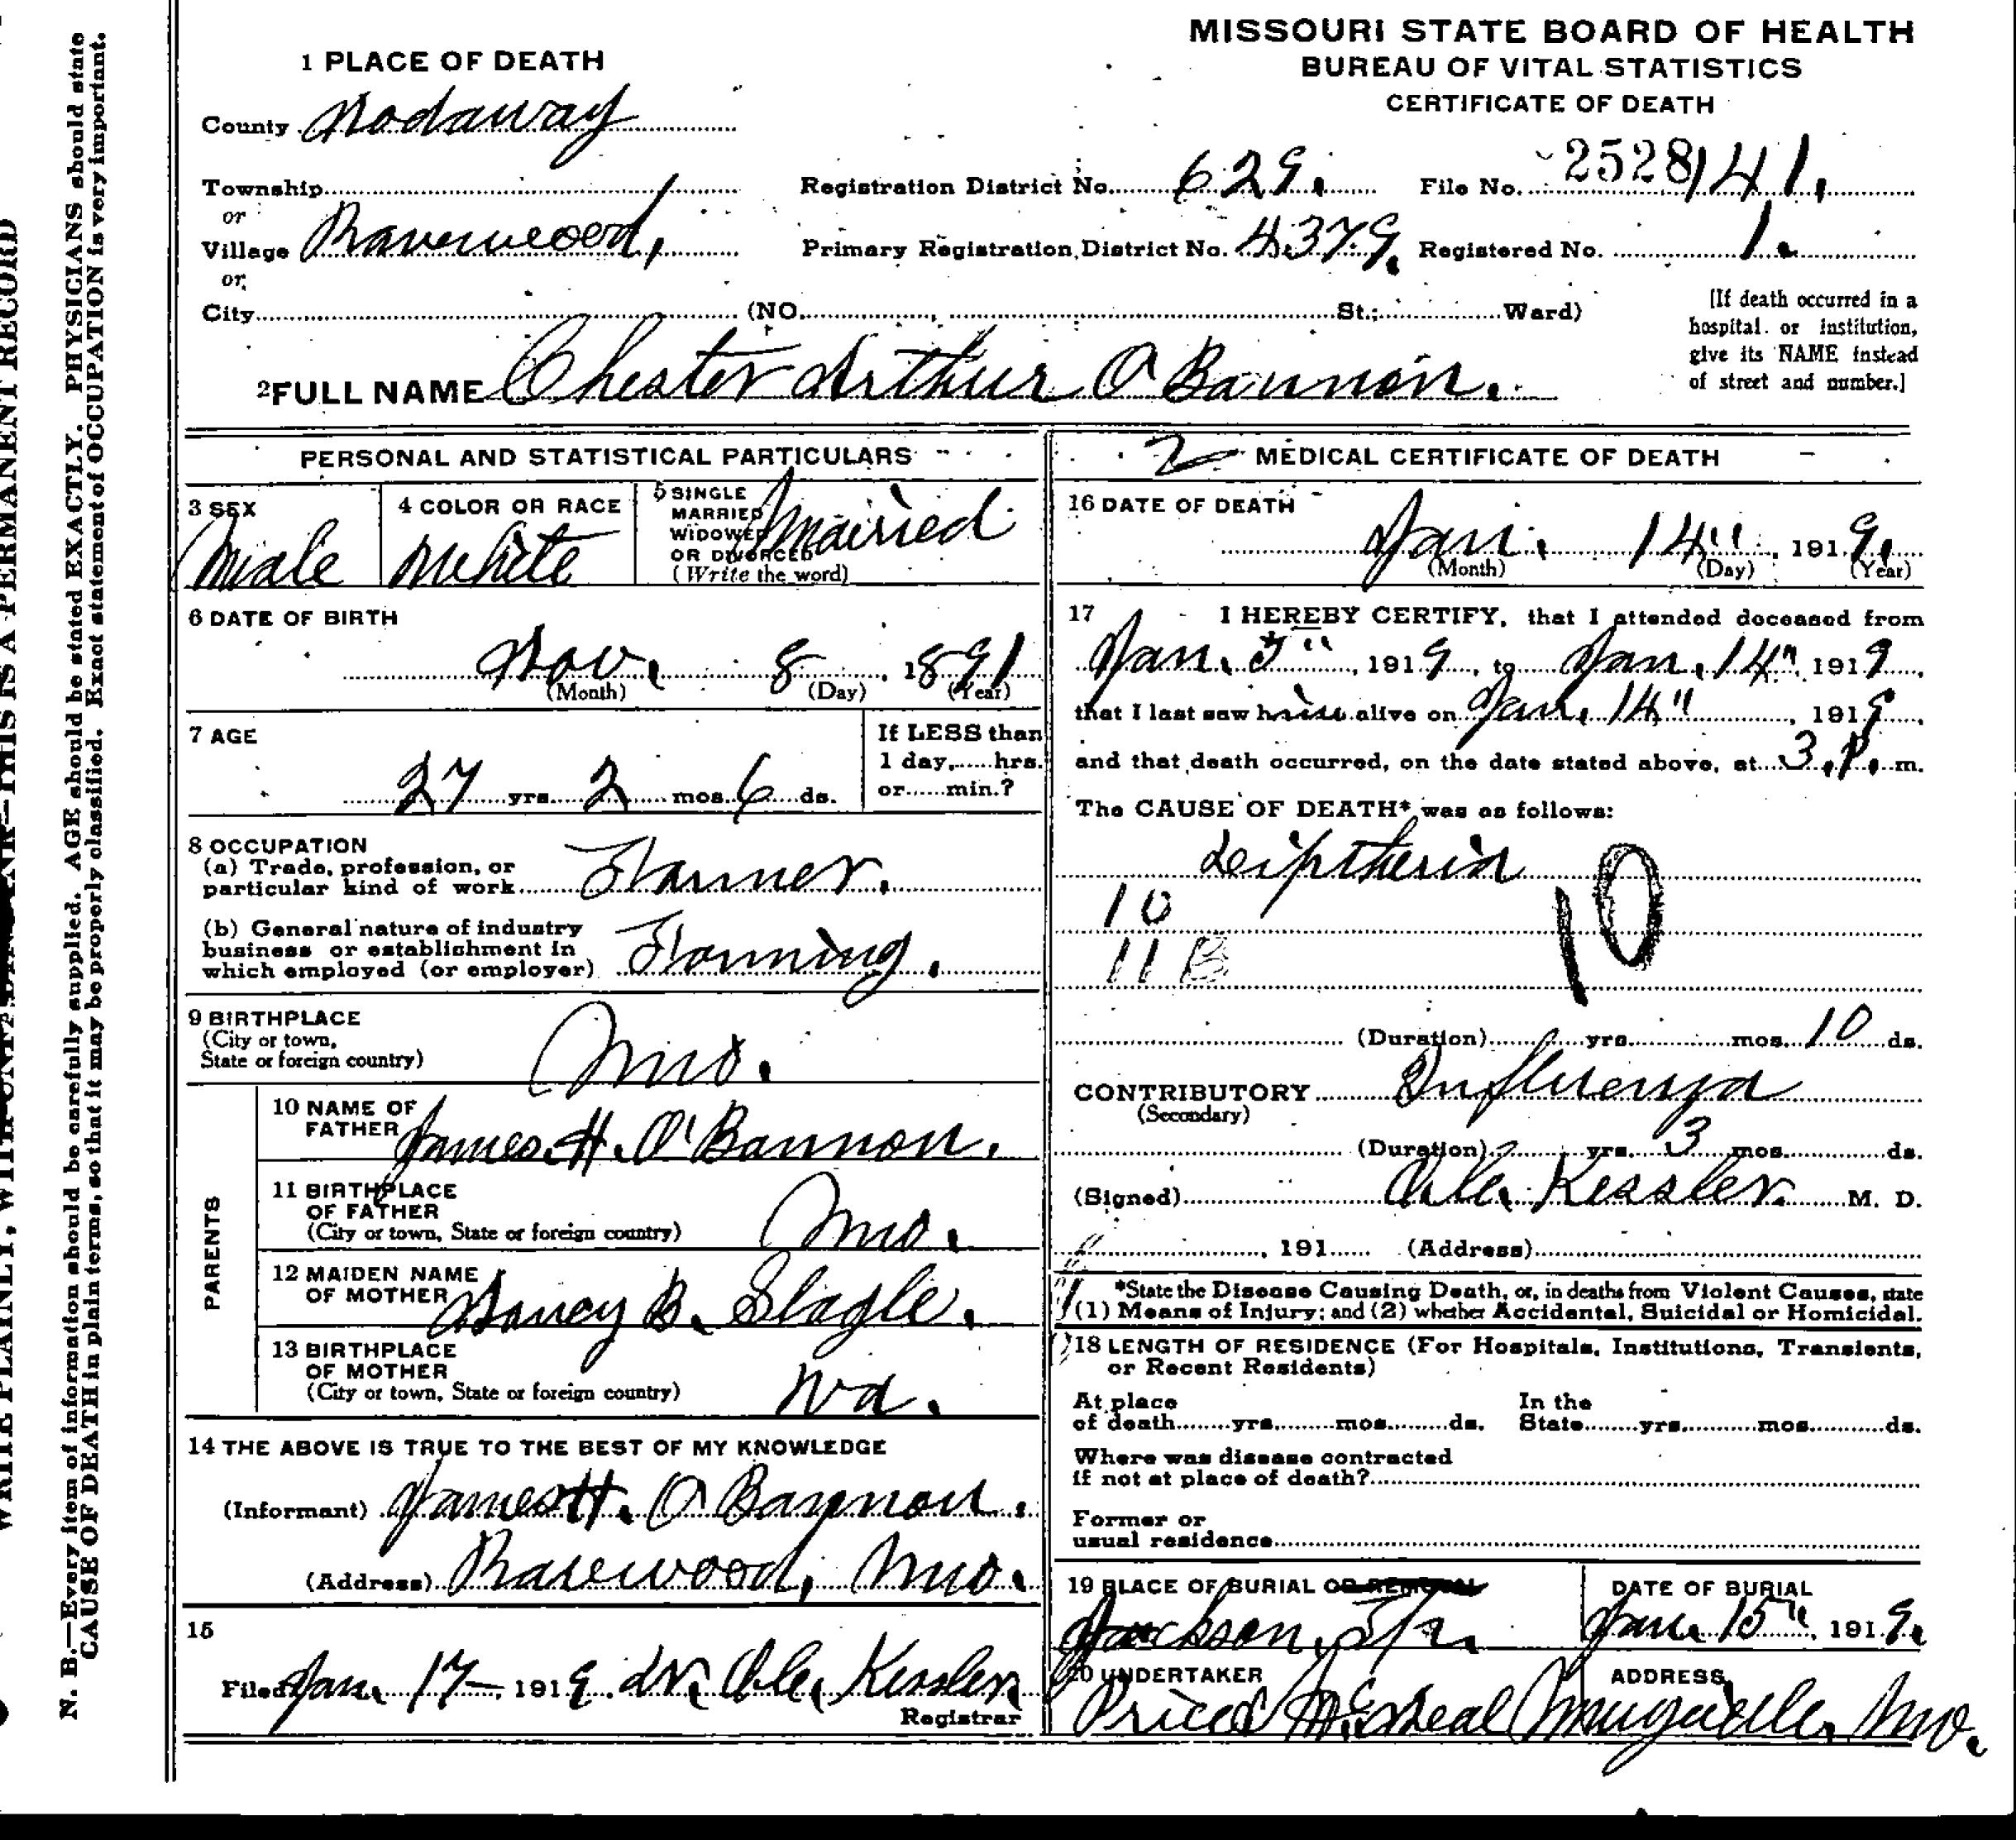 MISSOURI STATE BOARD OF HEALTH
BUREAU OF VITAL STATISTICS
CERTIFICATE OF DEATH
1 PLACE OF DEATH
County Nodaway
Township
or
Village Ravenwood,
or
City (NO. St.; Ward)
Registration District No. 629. File No. 2528 141.
Primary Registration District No. 4379. Registered No. 1.
[If death occurred in a
hospital or institution,
give its NAME instead
of street and number.]
2 FULL NAME Chester Arthur O'Bannon.
PERSONAL AND STATISTICAL PARTICULARS
3 SEX
Male
4 COLOR OR RACE
White
5 SINGLE
MARRIED
WIDOWED
OR DIVORCED
(Write the word)
Married
6 DATE OF BIRTH
Nov. 8, 1891
(Month) (Day) (Year)
7 AGE
27 yrs. 2 mos. 6 ds.
If LESS than
1 day, hrs.
or min.?
8 OCCUPATION
(a) Trade, profession, or
particular kind of work Farmer.
(b) General nature of industry
business or establishment in
which employed (or employer) Farming.
9 BIRTHPLACE
(City or town,
State or foreign country)
Mo.
PARENTS
10 NAME OF
FATHER James H. O'Bannon.
11 BIRTHPLACE
OF FATHER
(City or town, State or foreign country) Mo.
12 MAIDEN NAME
OF MOTHER Nancy B. Slagle.
13 BIRTHPLACE
OF MOTHER
(City or town, State or foreign country)
14 THE ABOVE IS TRUE TO THE BEST OF MY KNOWLEDGE
(Informant) James H. O'Bannon.
(Address) Ravenwood, Mo.
15
Filed Jan. 17 1919. Dr. Kessler
Registrar
2 MEDICAL CERTIFICATE OF DEATH
16 DATE OF DEATH
Jan. 14", 1919.
(Month) (Day) (Year)
17 I HEREBY CERTIFY, that I attended deceased from
Jan. 5", 1919, to Jan. 14", 1919,
that I last saw him alive on Jan. 14", 1919,
and that death occurred, on the date stated above, at 3 P. m.
The CAUSE OF DEATH* was as follows:
Diptheria
10
11 B
10
(Duration) yrs. mos. 10 ds.
CONTRIBUTORY Influenza
(Secondary)
(Duration) yrs. 3 mos. ds.
(Signed) Kessler. M. D.
, 191 (Address)
*State the Disease Causing Death, or, in deaths from Violent Causes, state
(1) Means of Injury; and (2) whether Accidental, Suicidal or Homicidal.
18 LENGTH OF RESIDENCE (For Hospitals, Institutions, Transients,
or Recent Residents)
At place In the
of death yrs. mos. ds. State yrs. mos. ds.
Where was disease contracted
if not at place of death?
Former or
usual residence
19 PLACE OF BURIAL OR REMOVAL
Jackson
DATE OF BURIAL
Jan. 15", 1919.
20 UNDERTAKER
Price & McNeal
ADDRESS
Maryville, Mo.
WRITE PLAINLY, WITH UNFADING INK—THIS IS A PERMANENT RECORD
N. B.—Every item of information should be carefully supplied. AGE should be stated EXACTLY. PHYSICIANS should state
CAUSE OF DEATH in plain terms, so that it may be properly classified. Exact statement of OCCUPATION is very important.